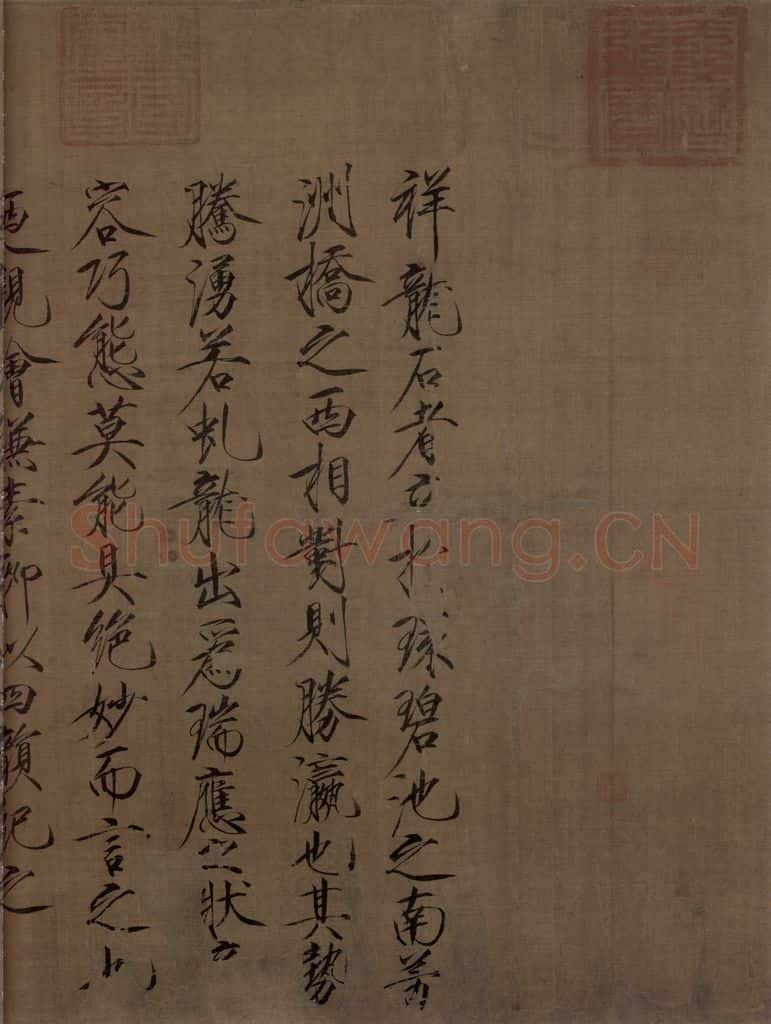 祥龍石者立於環碧池之南芳
洲橋之西相對則勝瀛也其勢
騰湧若虬龍出為瑞應之狀奇
容巧態莫能具絕妙而言之也
廼親繪縑素聊以四韻紀之
Shufawang.CN